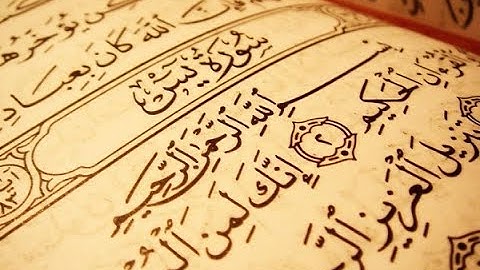 يُؤَخِّرُهُ
ٱللَّهَ كَانَ بِعِبَادِ
سُورَةُ يسٓ
بِسْمِ ٱللَّهِ ٱلرَّحْمَٰنِ ٱلرَّحِيمِ
ٱلْحَكِيمِ ٢ إِنَّكَ لَمِنَ ٱلْمُ
تَنزِيلَ ٱلْعَزِيزِ ٱلرَّ